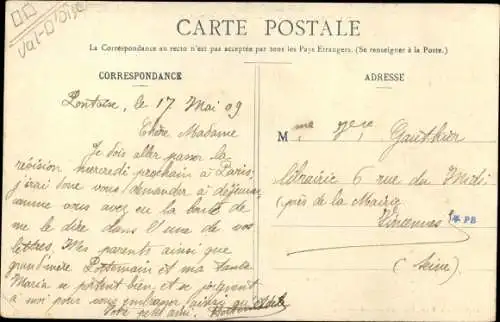 Val-D'Oise
CARTE POSTALE
La Correspondance au recto n'est pas acceptée par tous les Pays Etrangers. (Se renseigner à la Poste.)
CORRESPONDANCE
ADRESSE
Pontoise, le 17 Mai 09
Chère Madame
Je dois aller passer la
révision mercredi prochain à Paris;
j'irai donc vous demander à déjeuner
comme vous avez eu la bonté de
me le dire dans l'une de vos
lettres. Mes parents ainsi que
grand'mère Pottemain et ma tante
Maria se portent bien, et se joignent
à moi pour vous embrasser
Votre petit ami.
Mme Vve Gauthier
librairie 6 rue du Midi
(près de la Mairie)
Vincennes
* PB
(Seine)